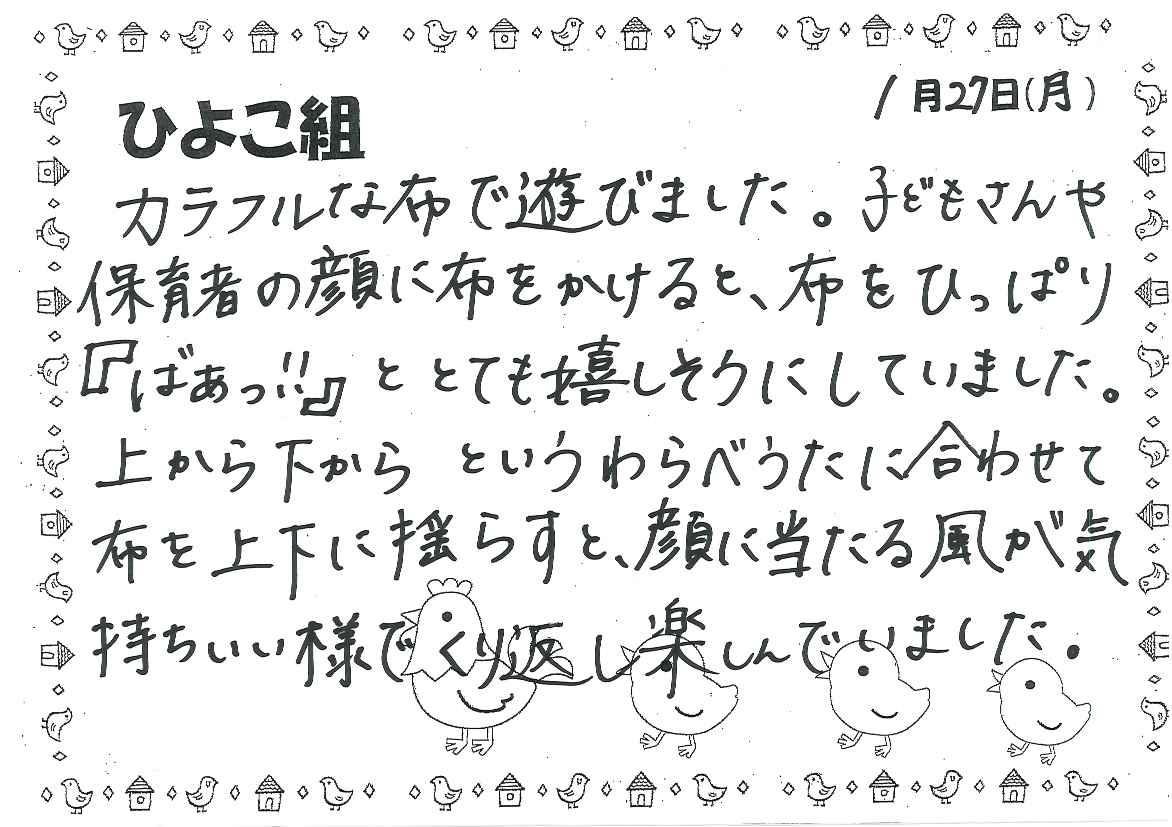 1月27日(月)
ひよこ組
カラフルな布で遊びました。子どもさんや
保育者の顔に布をかけると、布をひっぱり
『ばぁっ!!』ととても嬉しそうにしていました。
上から下から というわらべうたに合わせて
布を上下に揺らすと、顔に当たる風が気
持ちいい様でくり返し楽しんでいました.